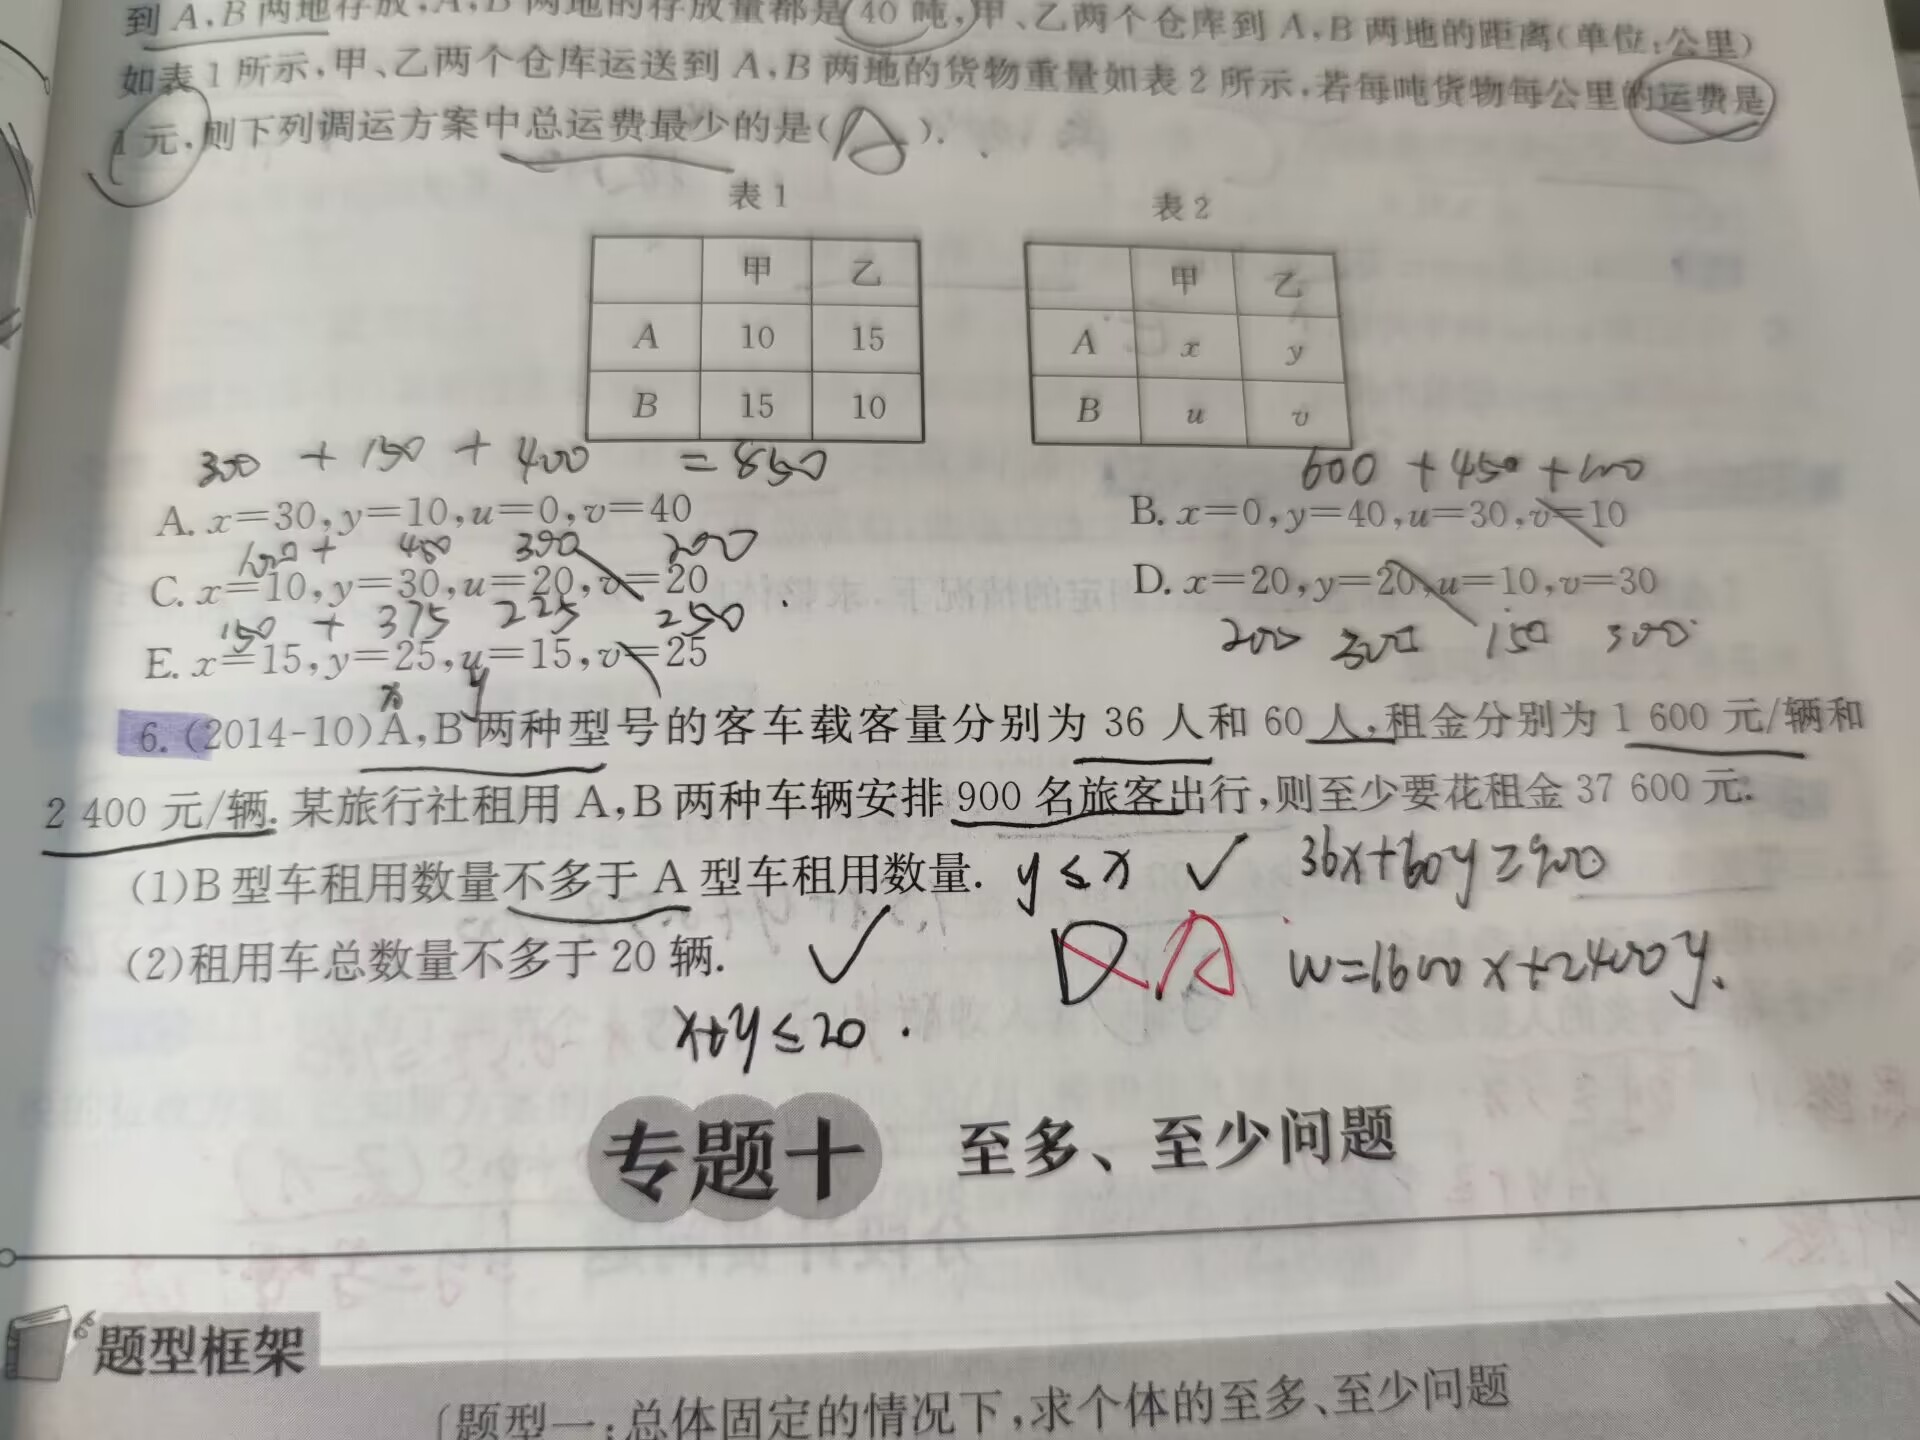 到 A,B 两地存放,A,B 两地的存放量都是 40 吨,甲、乙两个仓库到 A,B 两地的距离(单位:公里)
如表 1 所示,甲、乙两个仓库运送到 A,B 两地的货物重量如表 2 所示,若每吨货物每公里的运费是
1 元,则下列调运方案中总运费最少的是( A ).
表 1
表 2
甲 乙
A 10 15
B 15 10
甲 乙
A x y
B u v
300 + 150 + 400 = 850
600 + 450 + 100
A. x=30,y=10,u=0,v=40
B. x=0,y=40,u=30,v=10
100 + 450 300 200
C. x=10,y=30,u=20,v=20
D. x=20,y=20,u=10,v=30
150 + 375 225 250
200 300 150 300
E. x=15,y=25,u=15,v=25
x y
6. (2014-10)A,B 两种型号的客车载客量分别为 36 人和 60 人,租金分别为 1 600 元/辆和
2 400 元/辆. 某旅行社租用 A,B 两种车辆安排 900 名旅客出行,则至少要花租金 37 600 元.
(1)B 型车租用数量不多于 A 型车租用数量. y≤x ✓ 36x+60y≥900
(2)租用车总数量不多于 20 辆. ✓ D A w=1600x+2400y.
x+y≤20.
专题十 至多、至少问题
题型框架
题型一:总体固定的情况下,求个体的至多、至少问题